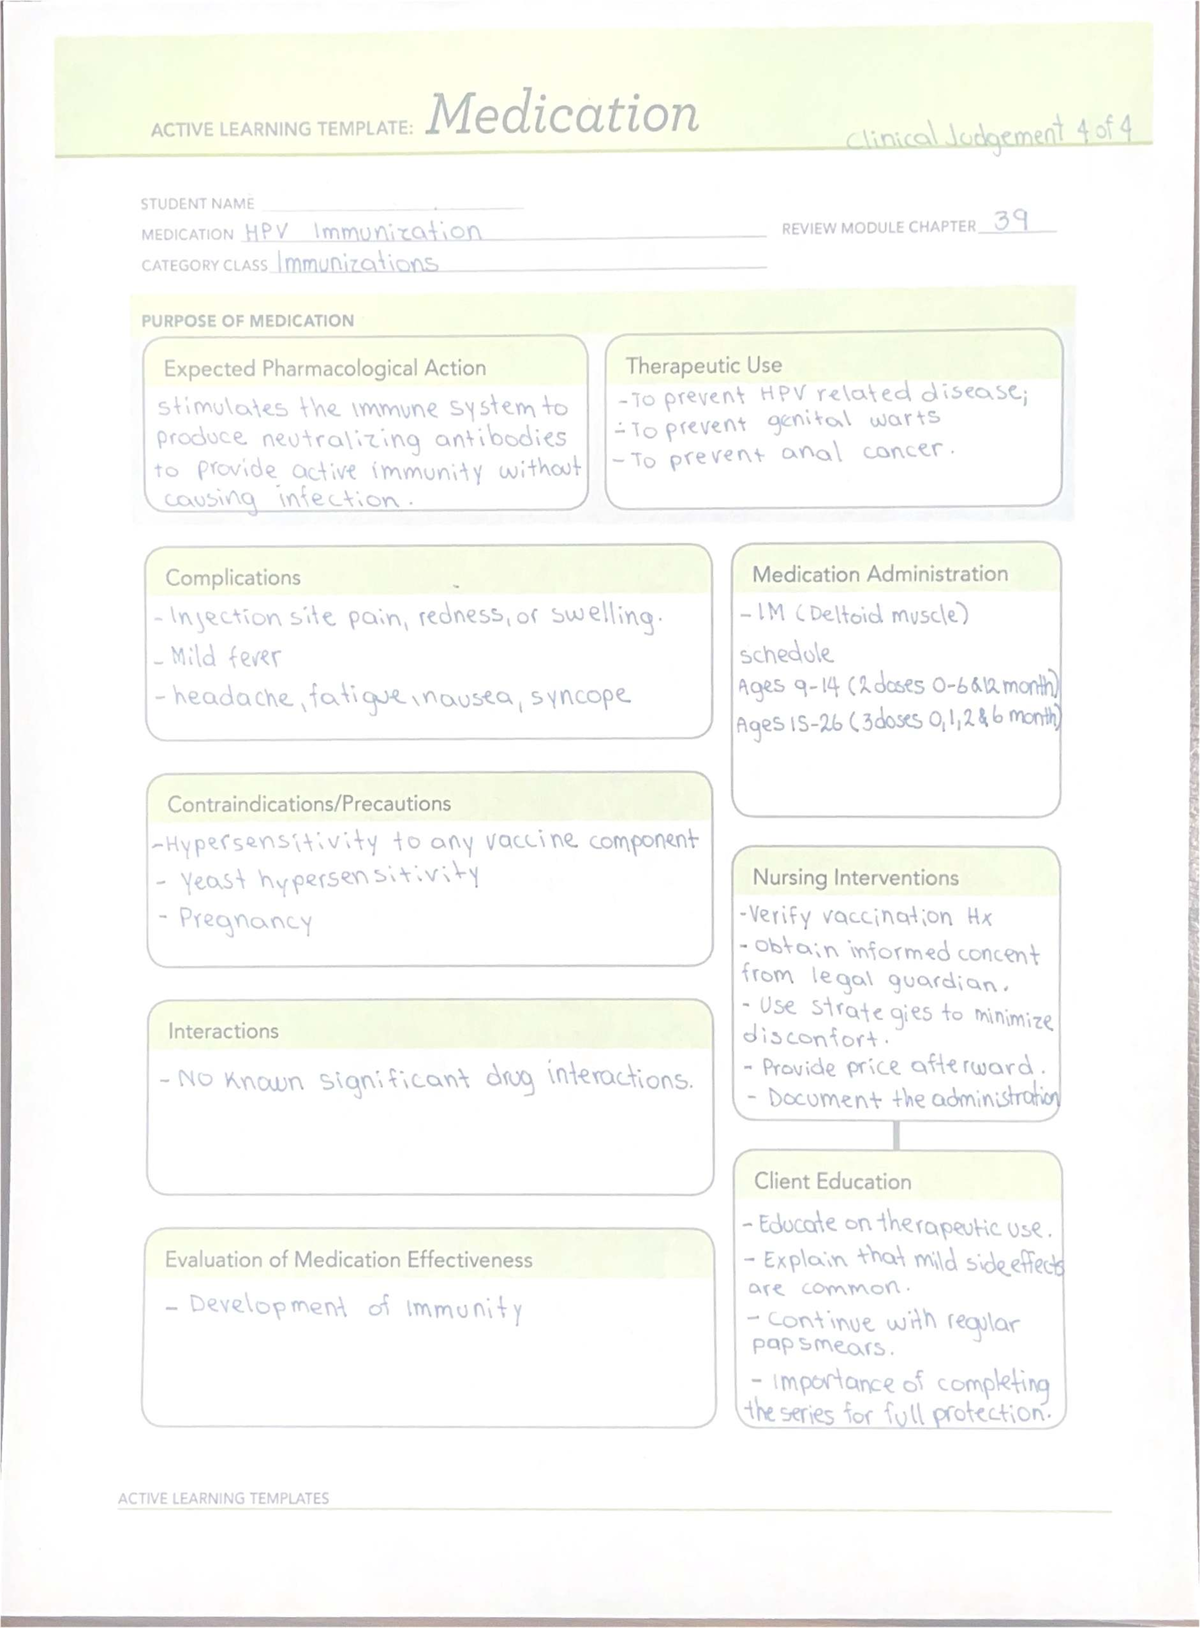 ACTIVE LEARNING TEMPLATE: Medication
Clinical Judgement 4 of 4
STUDENT NAME
MEDICATION HPV Immunization
REVIEW MODULE CHAPTER 39
CATEGORY CLASS Immunizations
PURPOSE OF MEDICATION
Expected Pharmacological Action
stimulates the immune system to
produce neutralizing antibodies
to provide active immunity without
causing infection.
Therapeutic Use
-To prevent HPV related disease;
-To prevent genital warts
-To prevent anal cancer.
Complications
-Injection site pain, redness, or swelling.
-Mild fever
-headache, fatigue, nausea, syncope
Medication Administration
-IM (Deltoid muscle)
schedule
Ages 9-14 (2 doses 0-6 & 12 month)
Ages 15-26 (3 doses 0, 1, 2 & 6 month)
Contraindications/Precautions
-Hypersensitivity to any vaccine component
- Yeast hypersensitivity
- Pregnancy
Nursing Interventions
-Verify vaccination Hx
- Obtain informed concent
from legal guardian.
- Use strategies to minimize
disconfort.
- Provide price afterward.
- Document the administration
Interactions
- No known significant drug interactions.
Client Education
- Educate on therapeutic use.
- Explain that mild side effects
are common.
- Continue with regular
pap smears.
- Importance of completing
the series for full protection.
Evaluation of Medication Effectiveness
- Development of Immunity
ACTIVE LEARNING TEMPLATES